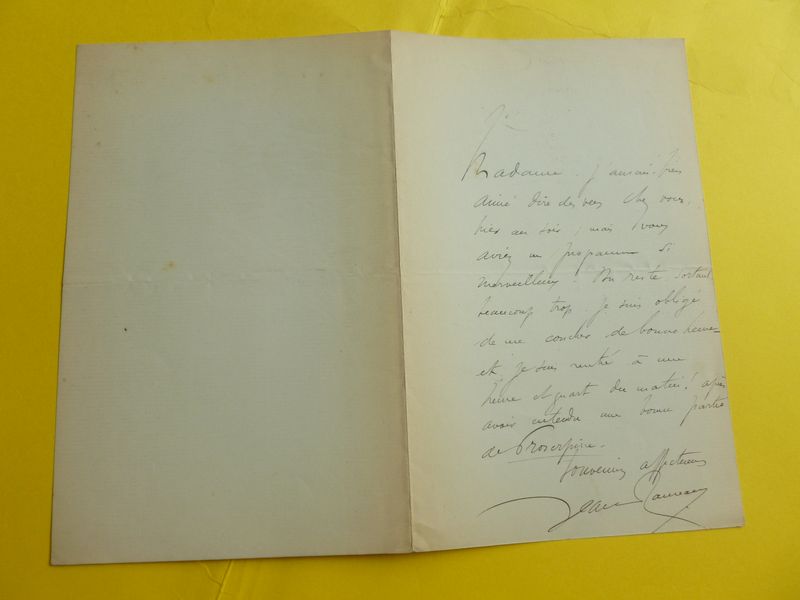 Madame. J'aurais bien
aimé dire des vers chez vous,
hier au soir, mais vous
aviez un programme si
merveilleux! On reste, surtout
beaucoup trop. Je suis obligé
de me coucher de bonne heure
et je suis rentré à une
heure et quart du matin! après
avoir entendu une bonne partie
de Proserpine.
Souvenirs affectueux
Jean Rameau